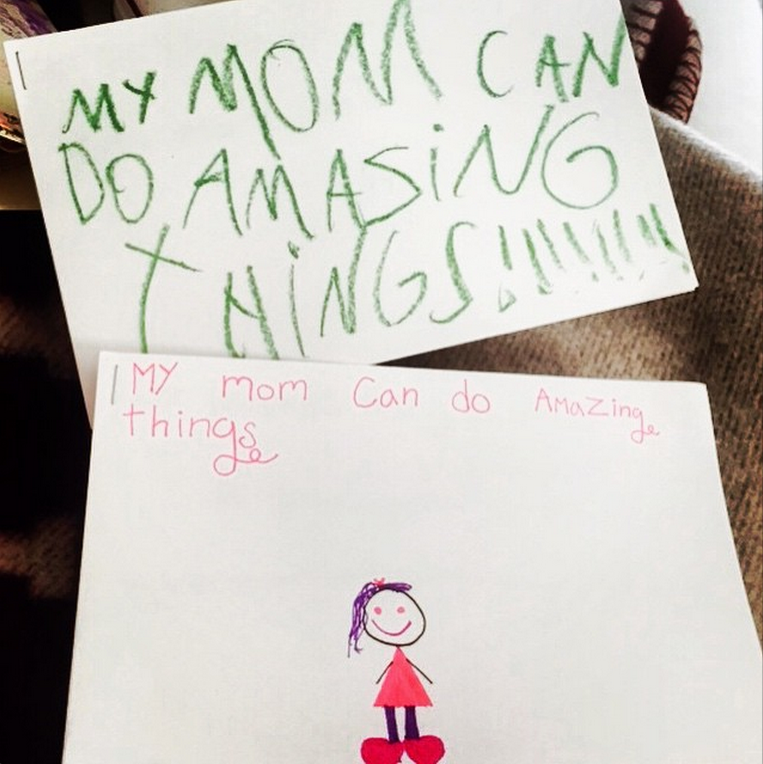 MY MOM CAN
DO AMASiNG
THiNGS!!!!!!!
MY mom Can do AmaZing
things